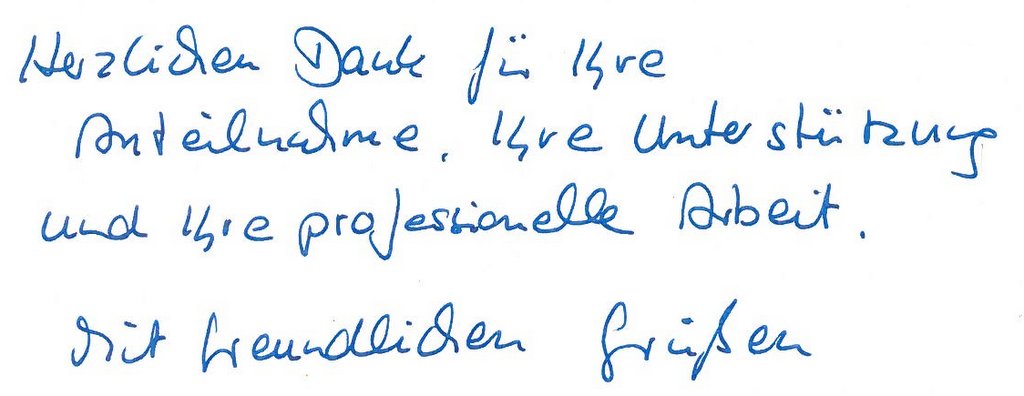 Herzlichen Dank für Ihre
Anteilnahme, Ihre Unterstützung
und Ihre professionelle Arbeit.
Mit freundlichen Grüßen